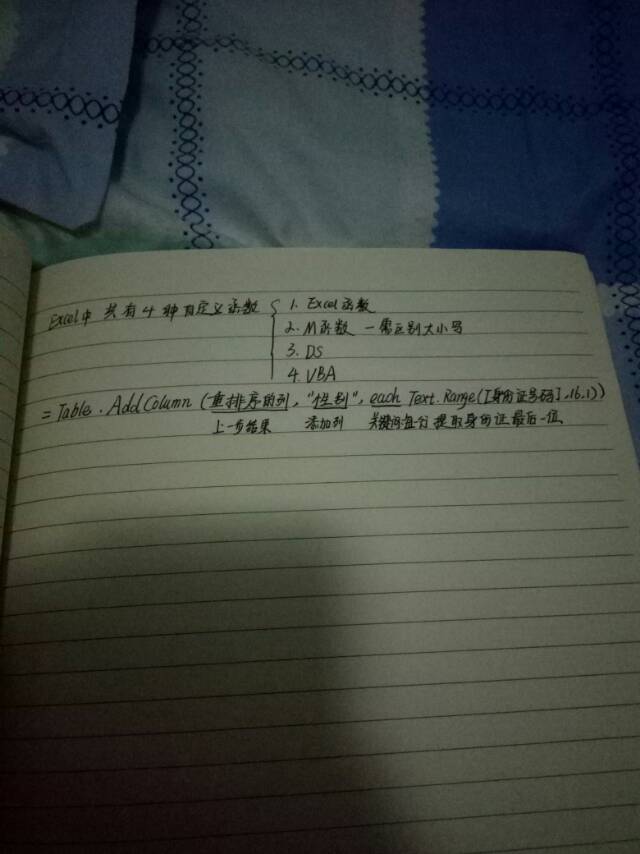 Excel中 共有4种自定义函数 { 1. Excel函数
2. M函数 — 需区别大小写
3. DS
4. VBA
= Table.AddColumn(重排序的列, "性别", each Text.Range([身份证号码],16,1))
上一步结果 添加列 关键词 每行 提取身份证最后一位